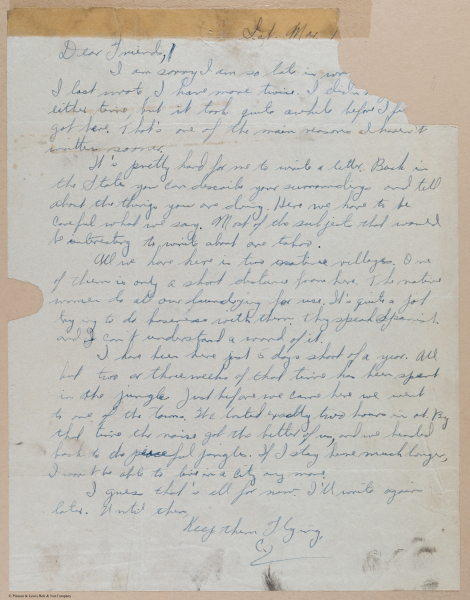 Sat. Mar. 1
Dear Friend,
I am sorry I am so late in
I last wrote I have move twice. I
either time but it took quite awhile before I
got here. That's one of the main reasons I haven't
written sooner.
It's pretty hard for me to write a letter. Back in
the States you can describe your surroundings and tell
about the things you are doing. Here we have to be
careful what we say. Most of the subjects that would
be interesting to write about are taboo.
All we have here is two native villages. One
of them is only a short distance from here. The native
women do all our laundrying for use. It's quite a job
trying to do business with them. They speak Spanish
and I can't understand a word of it.
I have been here just 6 days short of a year. All
but two or three weeks of that time has been spent
in the jungle. Just before we came here we went
to one of the towns. We lasted exactly two hours in it. By
that time the noise got the better of us, and we headed
back to do peaceful jungles. If I stay here much longer,
I won't be able to live in a city any more.
I guess that's all for now. I'll write again
later. Until then
Keep them Flying,
Cy
© Putnam & Lewis Bolt & Nut Company